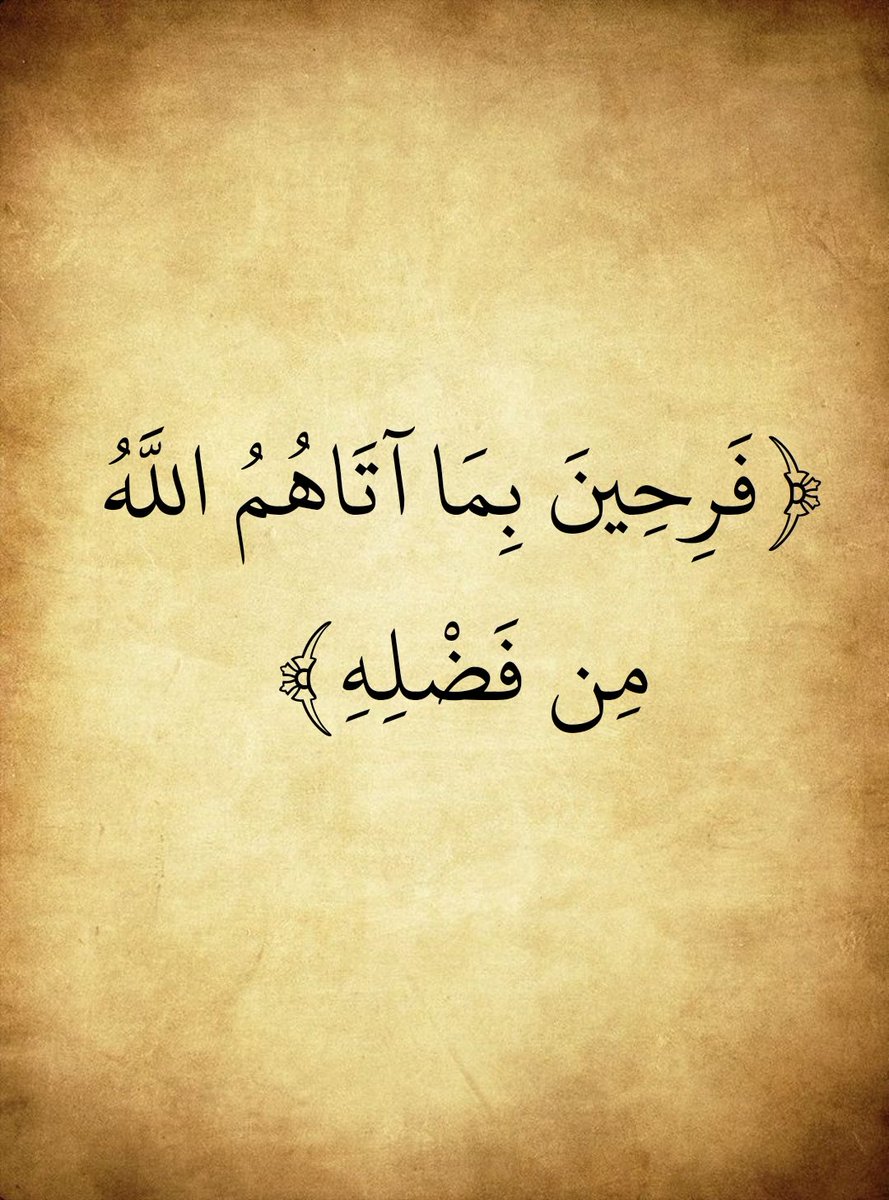 ﴿ فَرِحِينَ بِمَا آتَاهُمُ اللَّهُ
مِن فَضْلِهِ ﴾